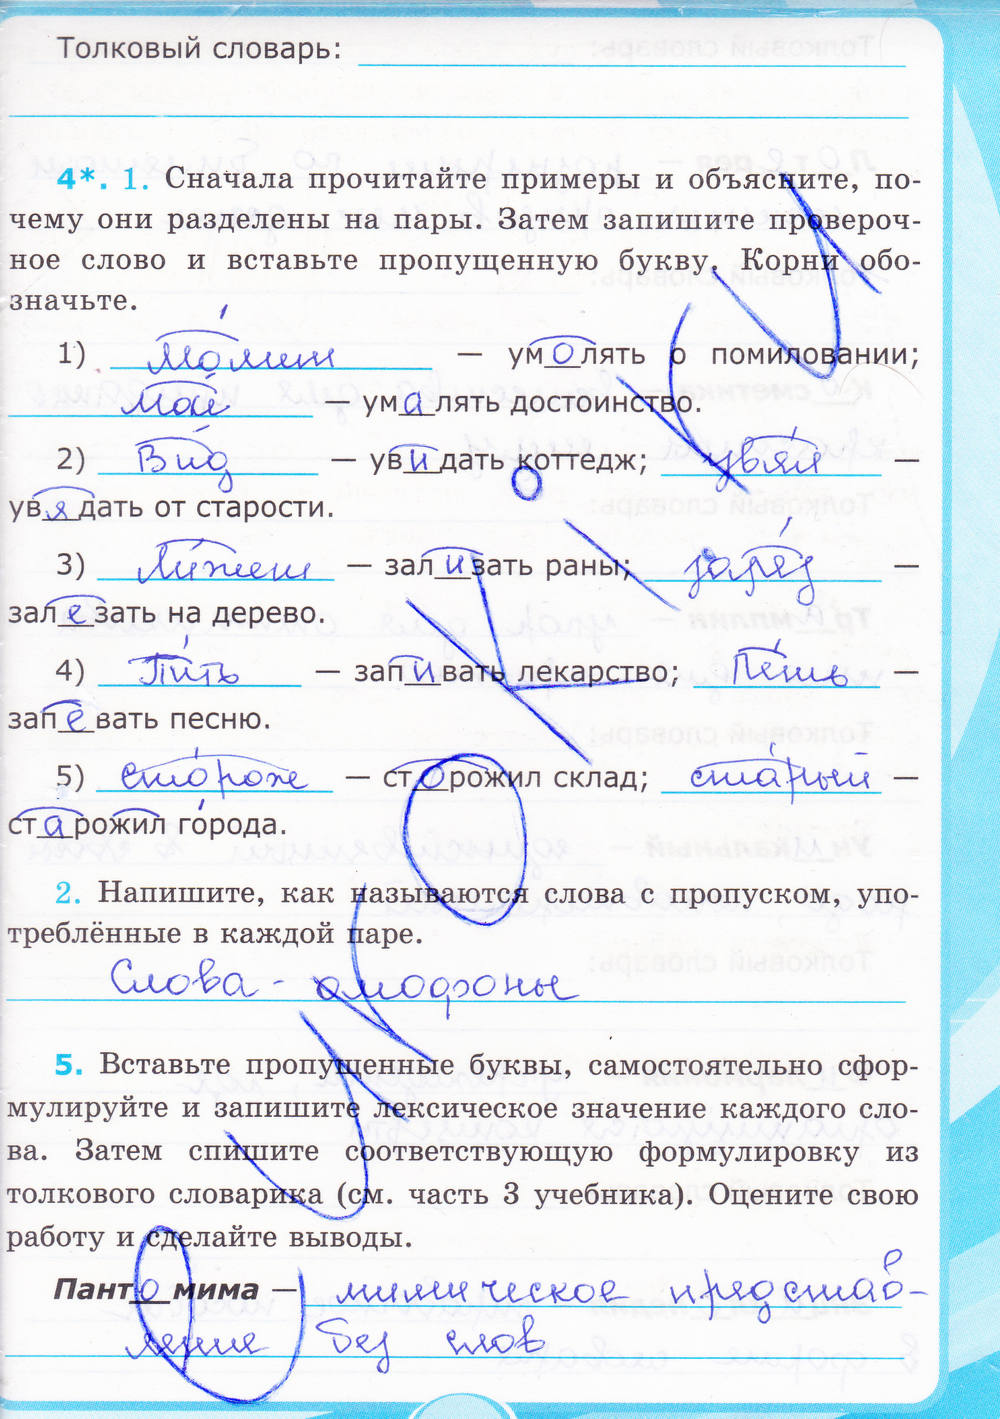 Толковый словарь:
4*. 1. Сначала прочитайте примеры и объясните, по-
чему они разделены на пары. Затем запишите провероч-
ное слово и вставьте пропущенную букву. Корни обо-
значьте.
1) молит — умолять о помиловании;
мал — умалять достоинство.
2) Вид — увидать коттедж; увял —
увядать от старости.
3) Лижет — зализать раны;
залезать на дерево.
4) Пить — запивать лекарство; Петь —
запевать песню.
5) сторож — сторожил склад; старый —
старожил города.
2. Напишите, как называются слова с пропуском, упо-
треблённые в каждой паре.
Слова - омофоны
5. Вставьте пропущенные буквы, самостоятельно сфор-
мулируйте и запишите лексическое значение каждого сло-
ва. Затем спишите соответствующую формулировку из
толкового словарика (см. часть 3 учебника). Оцените свою
работу и сделайте выводы.
Пантомима — мимическое представ-
ление без слов